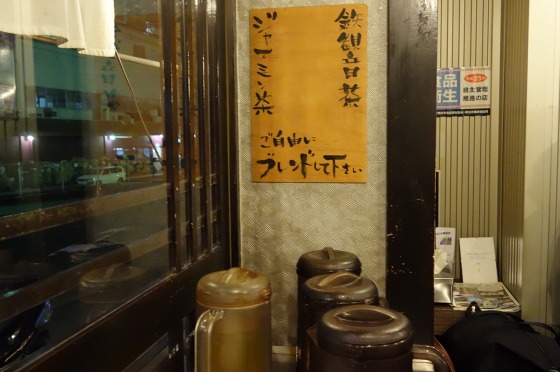 鉄観音茶
ジャスミン茶
ご自由に
ブレンドして下さい
食品
衛生
平成25年
自主管理
推進の店